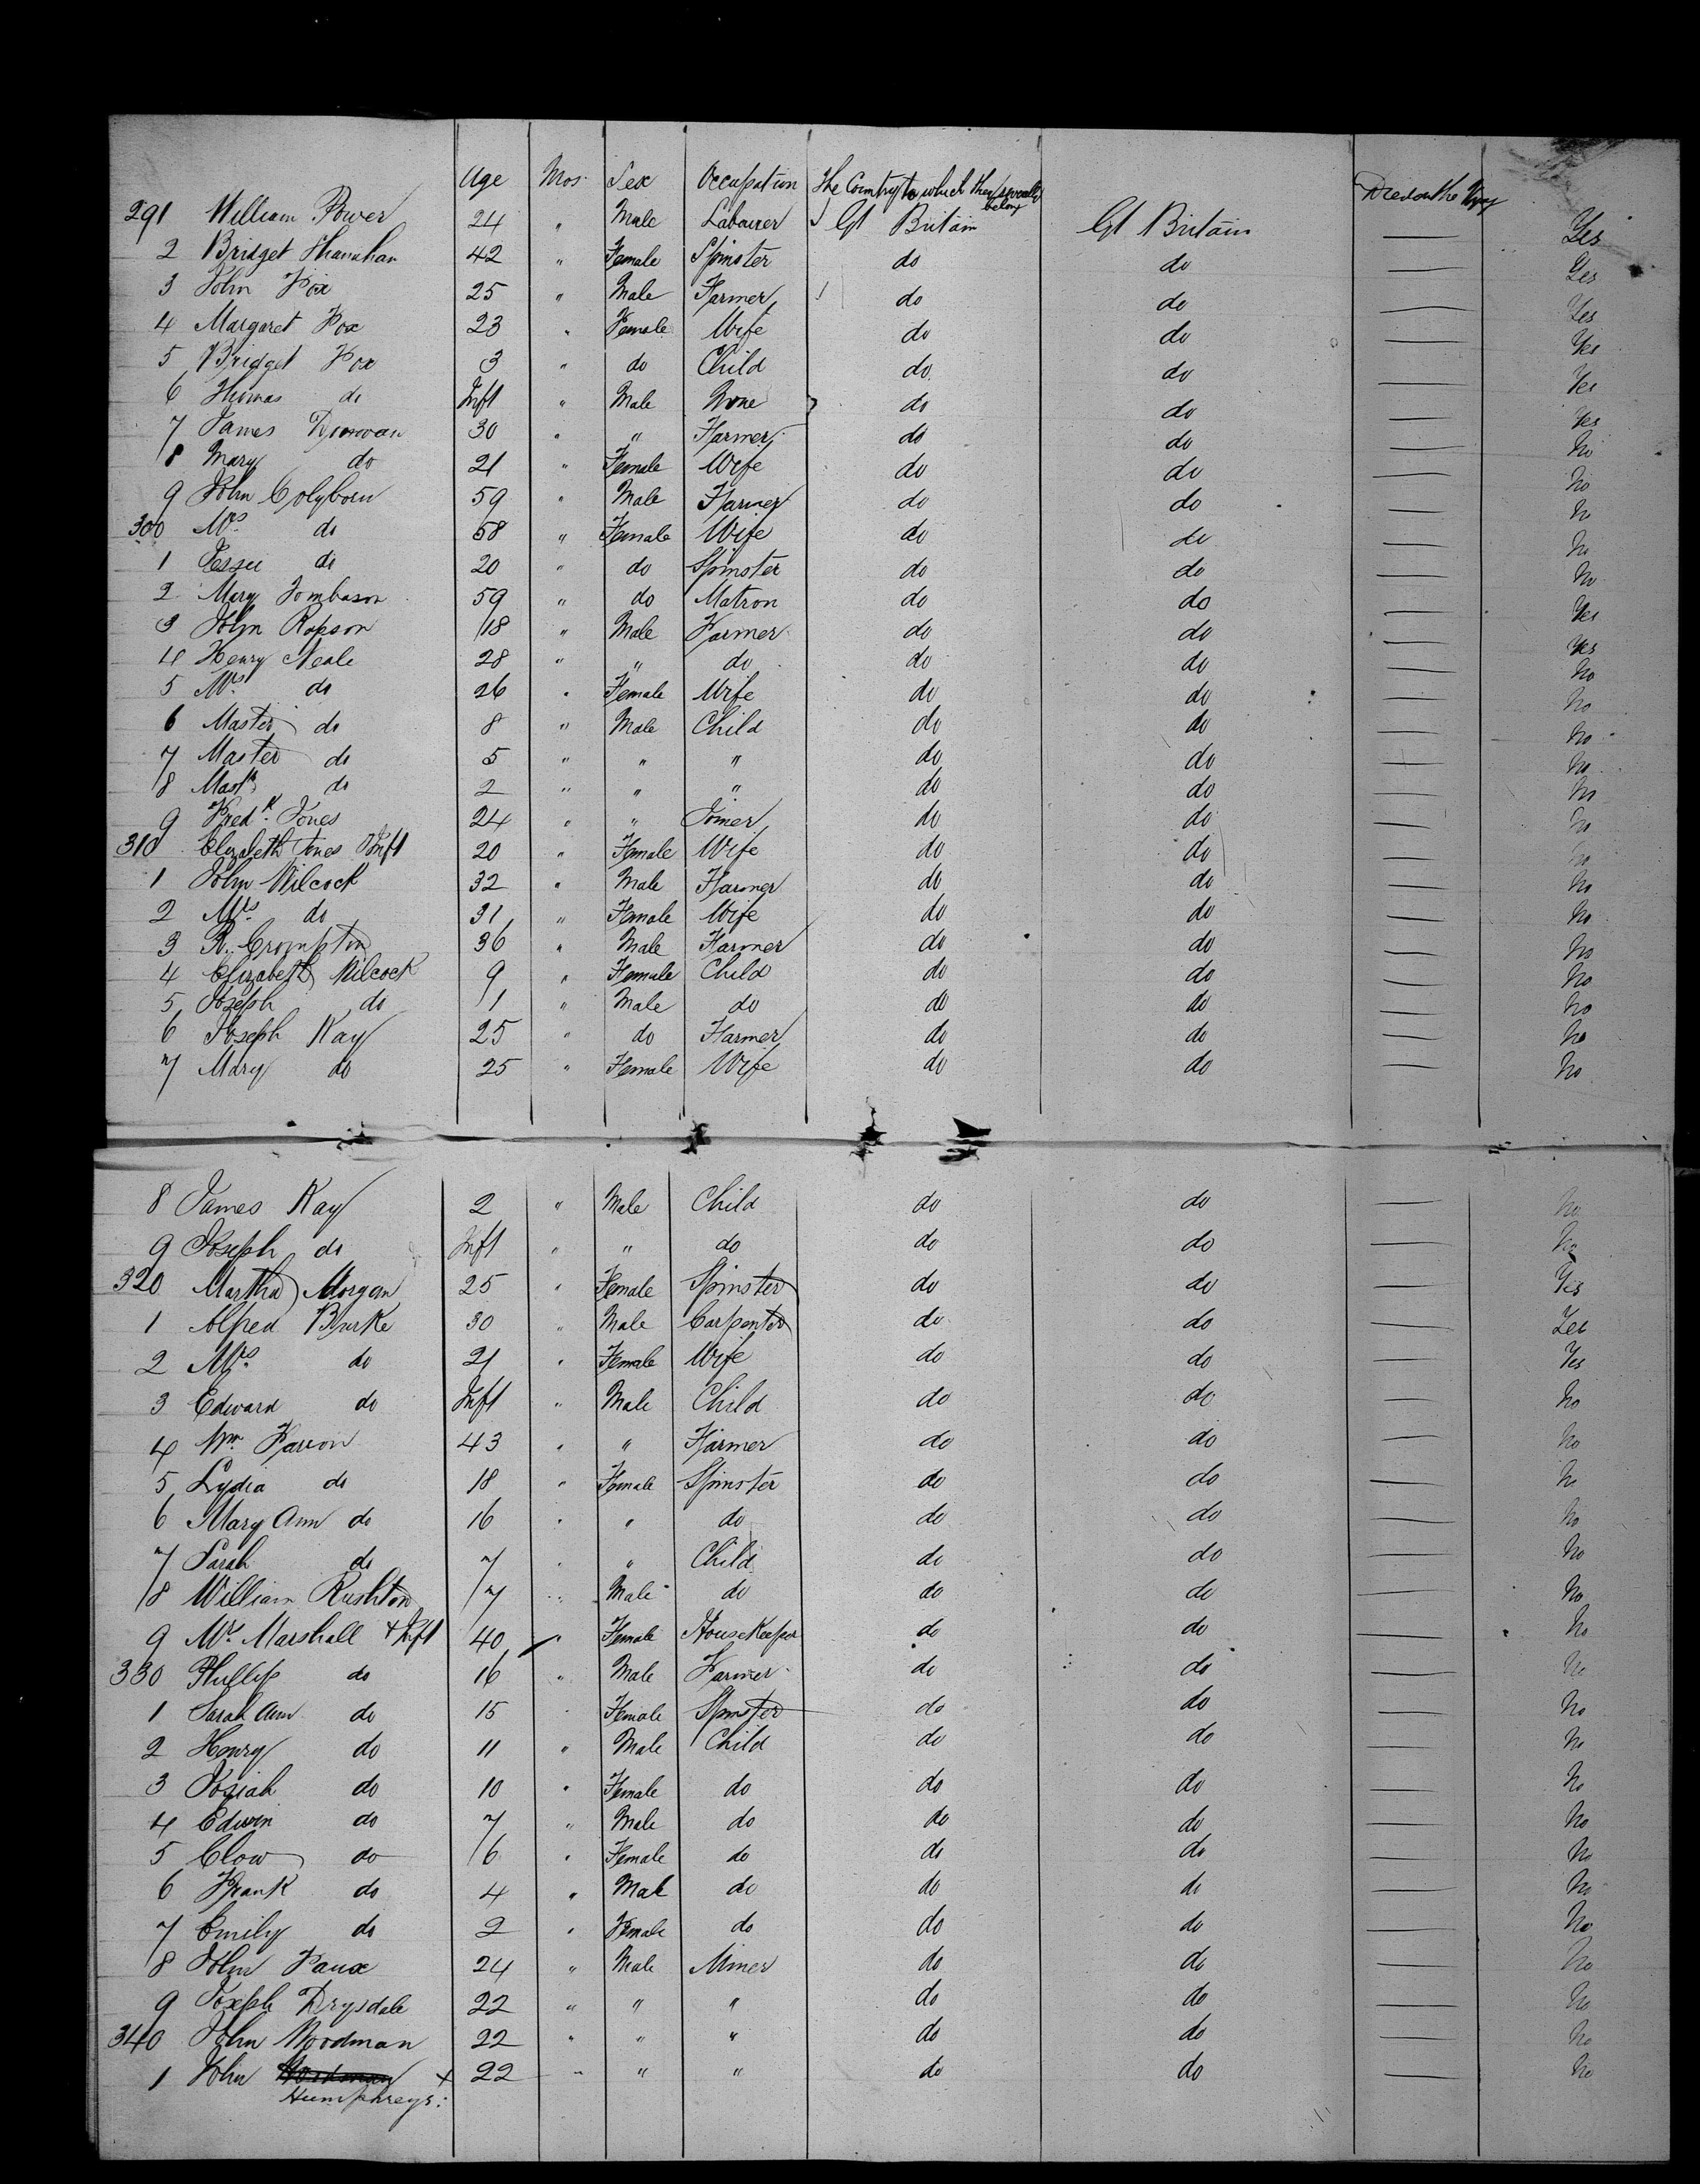 Age Mos. Sex Occupation The Country to which they severally belong Died on the Voy
291 William Power 24 " Male Labourer Gt Britain Gt Britain — Yes
2 Bridget Shanahan 42 " Female Spinster do do — Yes
3 John Fox 25 " Male Farmer do do — Yes
4 Margaret Fox 23 " Female Wife do do — Yes
5 Bridget Fox 3 " do Child do do — Yes
6 Thomas do Inft " Male None do do — Yes
7 James Donovan 30 " " Farmer do do — No
8 Mary do 21 " Female Wife do do — No
9 John Colyborn 59 " Male Farmer do do — No
300 Mrs do 58 " Female Wife do do — No
1 Jessie do 20 " do Spinster do do — No
2 Mary Tombason 59 " do Matron do do — Yes
3 John Robson 18 " Male Farmer do do — Yes
4 Henry Neale 28 " " do do do — No
5 Mrs do 26 " Female Wife do do — No
6 Master do 8 " Male Child do do — No
7 Master do 5 " " " do do — No
8 Mastr do 2 " " " do do — No
9 Fredk Jones 24 " " Joiner do do — No
310 Elizabeth Jones & Inft 20 " Female Wife do do — No
1 John Wilcock 32 " Male Farmer do do — No
2 Mrs do 31 " Female Wife do do — No
3 R. Crompton 36 " Male Farmer do do — No
4 Elizabeth Wilcock 9 " Female Child do do — No
5 Joseph do 1 " Male do do do — No
6 Joseph Kay 25 " do Farmer do do — No
7 Mary do 25 " Female Wife do do — No
8 James Kay 2 " Male Child do do — No
9 Joseph do Inft " " do do do — No
320 Martha Morgan 25 " Female Spinster do do — Yes
1 Alfred Burke 30 " Male Carpenter do do — Yes
2 Mrs do 21 " Female Wife do do — Yes
3 Edward do Inft " Male Child do do — No
4 Wm Farron 43 " " Farmer do do — No
5 Lydia do 18 " Female Spinster do do — No
6 Mary Ann do 16 " " do do do — No
7 Sarah do 7 " " Child do do — No
8 William Rushton 7 " Male do do do — No
9 Mrs Marshall + Inft 40 " Female HouseKeeper do do — No
330 Phillip do 16 " Male Farmer do do — No
1 Sarah Ann do 15 " Female Spinster do do — No
2 Henry do 11 " Male Child do do — No
3 Josiah do 10 " Female do do do — No
4 Edwin do 7 " Male do do do — No
5 Clow do 6 " Female do do do — No
6 Frank do 4 " Male do do do — No
7 Emily do 2 " Female do do do — No
8 John Faux 24 " Male Miner do do — No
9 Joseph Drysdale 22 " " " do do — No
340 John Woodman 22 " " " do do — No
1 John Woodman + 22 " " " do do — No
Humphreys: